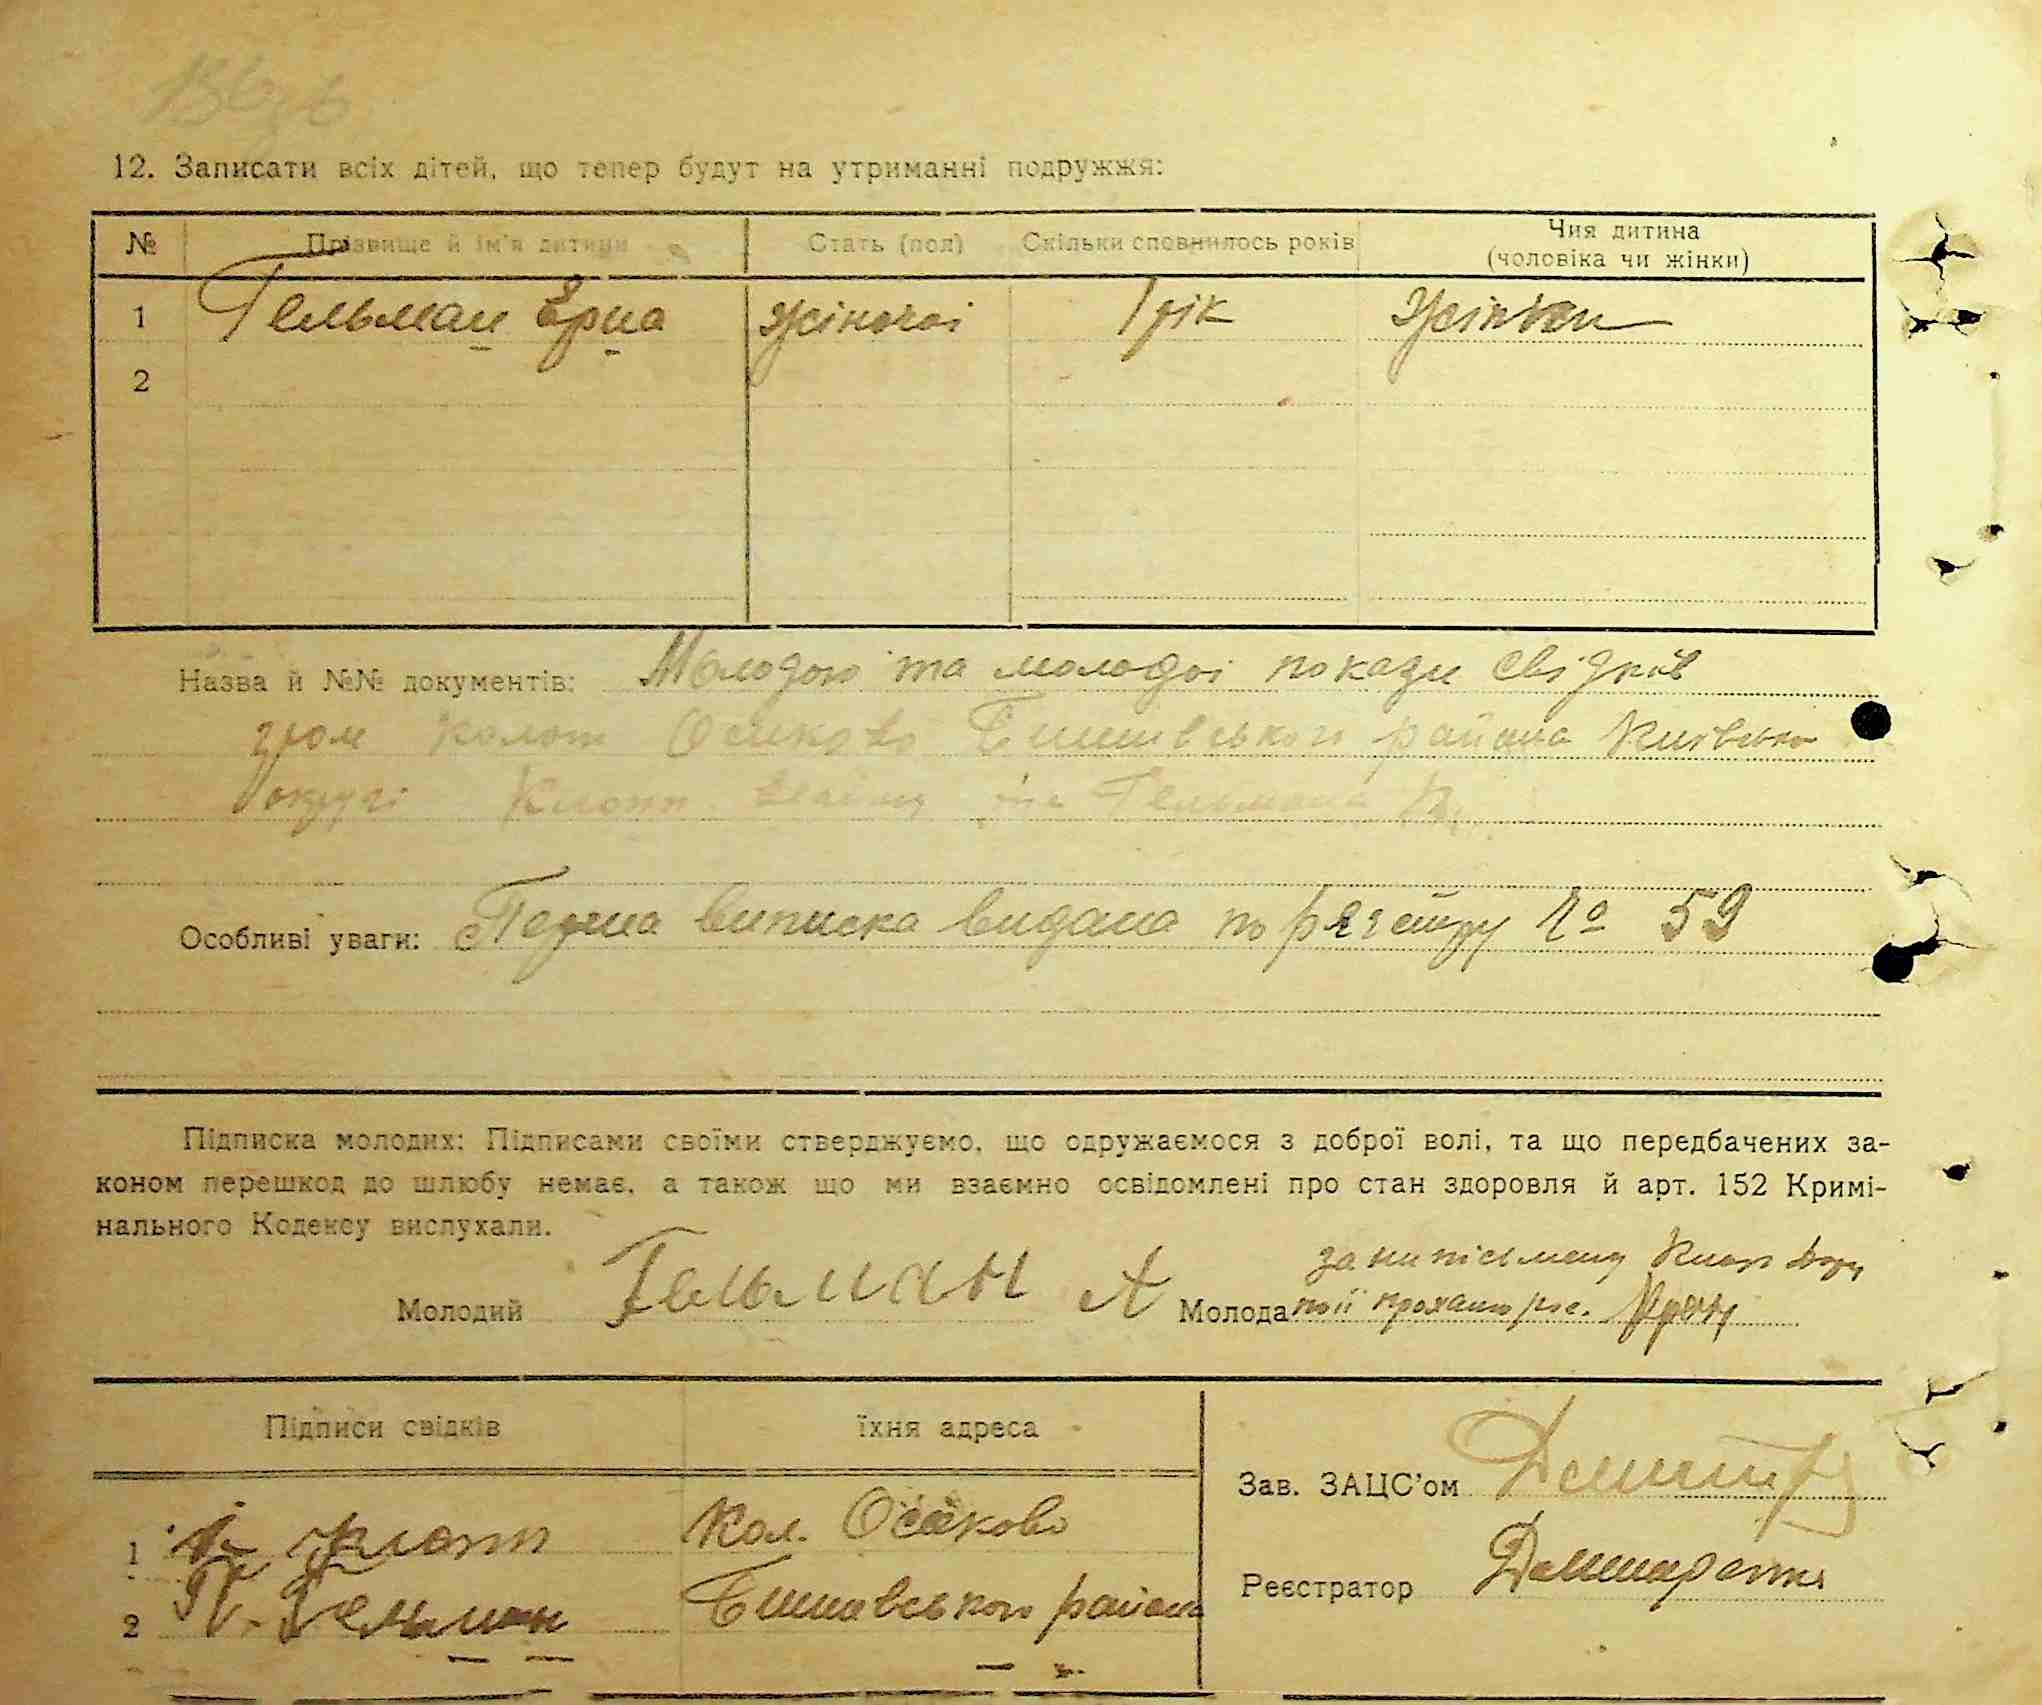 12. Записати всіх дітей, що тепер будут на утриманні подружжя:
№ Прізвище й ім'я дитини Стать (пол) Скільки сповнилось років Чия дитина (чоловіка чи жінки)
1 Гельман Ерна жіночоі 1 рік Жінки
2
Назва й №№ документів: Молодого та молодоі покази свідків
гром колот Осиково Бишівського района Київсько
округі Клотт та Гельмана
Особливі уваги: Перша виписка видана по реєстру № 59
Підписка молодих: Підписами своїми стверджуємо, що одружаємося з доброї волі, та що передбачених за-
коном перешкод до шлюбу немає, а також що ми взаємно освідомлені про стан здоровля й арт. 152 Кримі-
нального Кодексу вислухали.
за ниписьмену Клот
Молодий Гельман А Молода по її проханю рос.
Підписи свідків їхня адреса
Зав. ЗАЦС'ом
1 Клотт Кол. Осиково
Реєстратор
2 Гельман Бишавського района